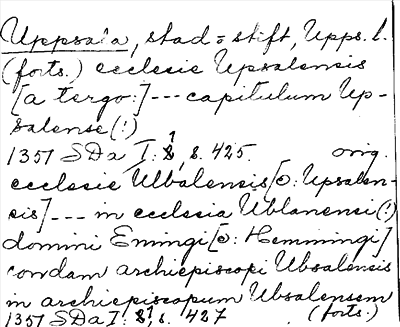 Uppsala, stad = stift, Upps. l.
(forts.) ecclesie Upsalensis
[a tergo:] --- capitulum Up-
salense (:)
1357 SDa I: 1, s. 425. orig.
ecclesie Ulbalensis [ɔ: Upsalen-
sis] --- in ecclesia Ublanensi (:)
domini Emingi [ɔ: Hemmingi]
condam archiepiscopi Ubsalensis
in archiepiscopum Ubsalensem
1357 SDa I: 1, s. 427 (forts.)